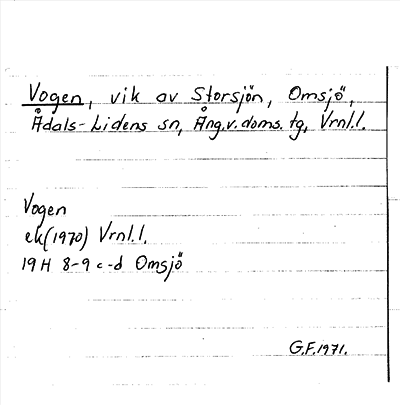 Vogen, vik av Storsjön, Omsjö,
Ådals-Lidens sn, Ång.v.doms.tg, Vrnl.l.
Vogen
ek(1970) Vrnl.l.
19H 8-9 c-d Omsjö
G.F.1971.